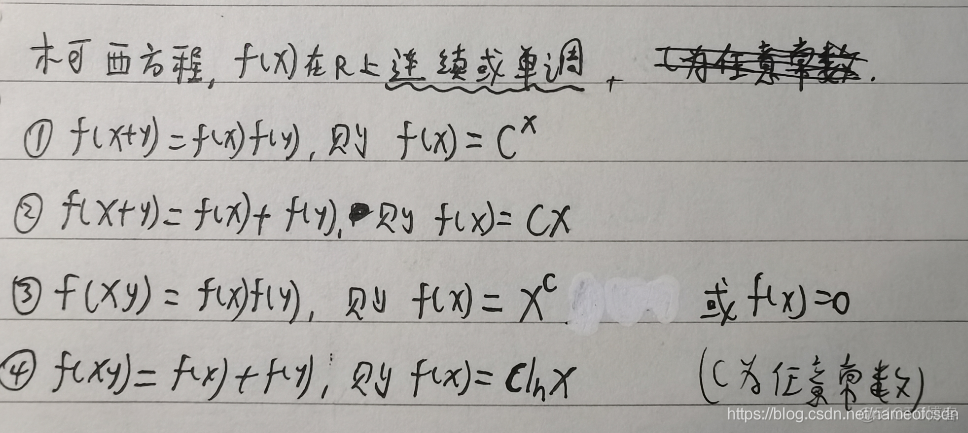 柯西方程, f(x)在R上连续或单调,
① f(x+y)=f(x)f(y), 则 f(x)=C^x
② f(x+y)=f(x)+f(y), 则 f(x)=Cx
③ f(xy)=f(x)f(y), 则 f(x)=x^c 或f(x)=0
④ f(xy)=f(x)+f(y), 则 f(x)=Clnx (C为任意常数)
https://blog.csdn.net/nameofcsdn